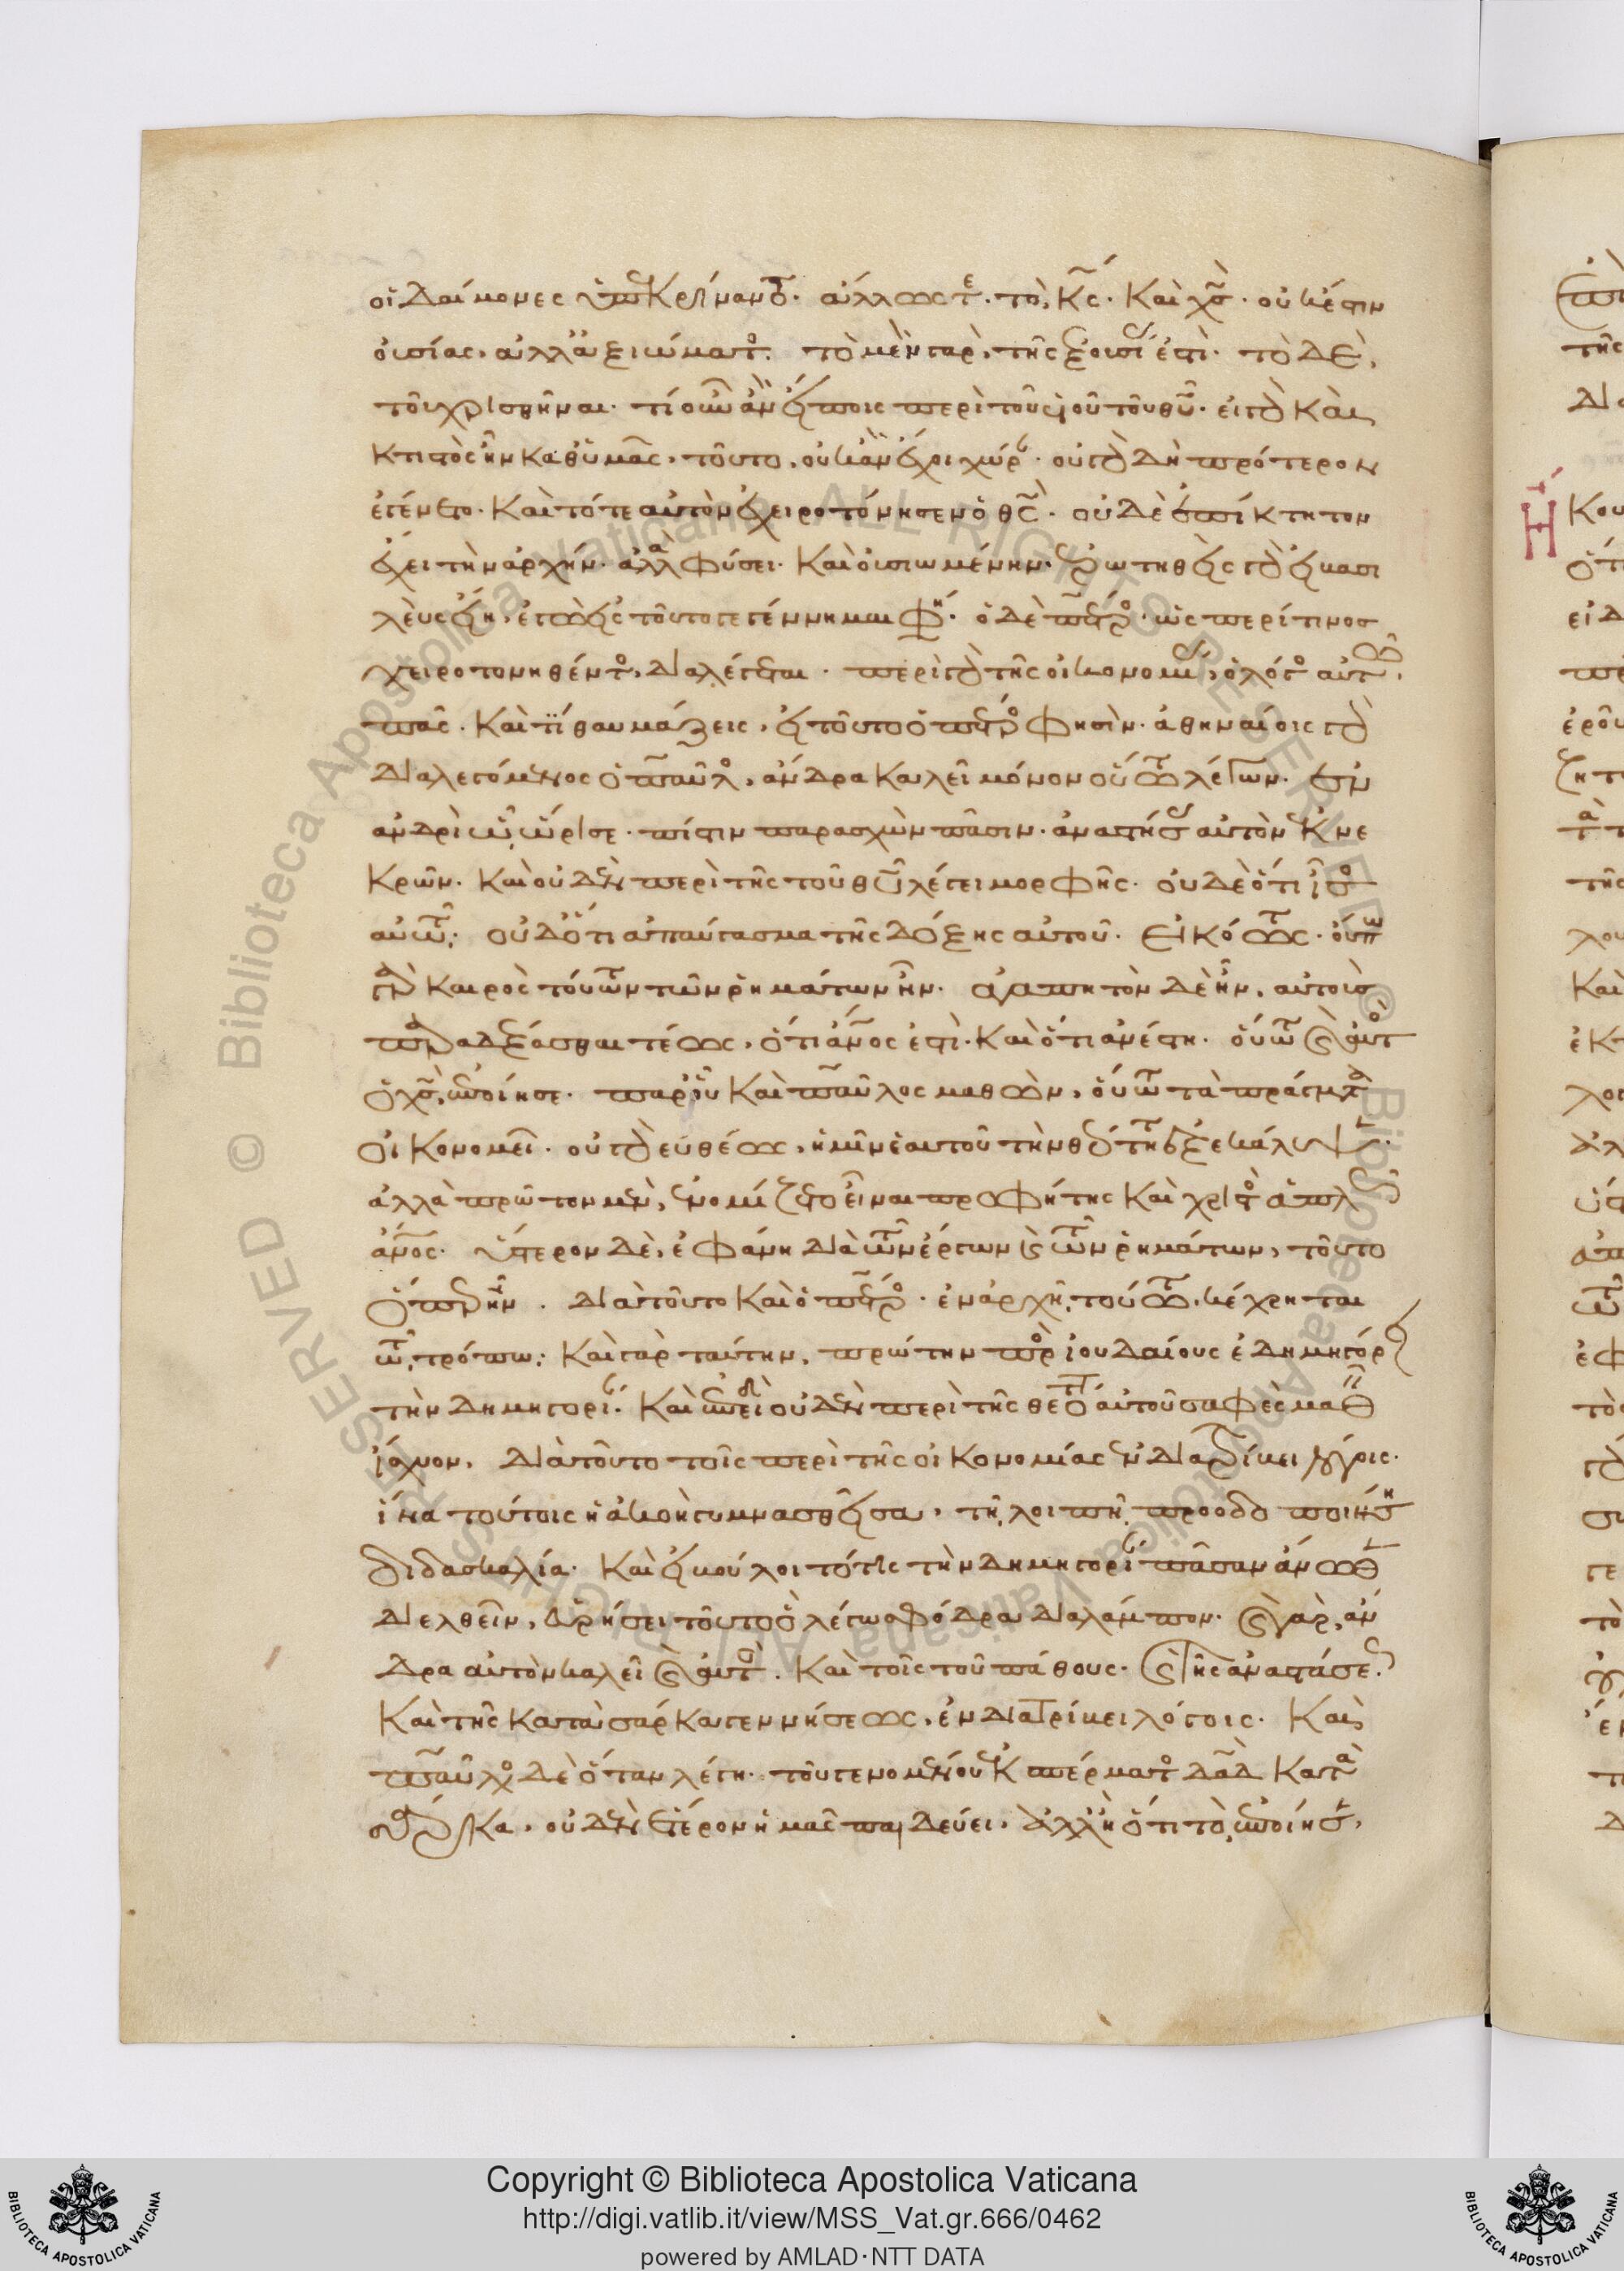 οἱ δαίμονες ὑπεκρίναντο. ἄλλως τε. τὸ, κς. καὶ χς. οὐκ ἔστιν
οὐσίας, ἀλλ' ἀξιώματος. τὸ μὲν γὰρ, τῆς ἐξουσίας ἐστί. τὸ δὲ,
τοῦ χρισθῆναι. τί οὖν ἂν εἴποις περὶ τοῦ υἱοῦ τοῦ θυ. εἰ γὰρ καὶ
κτιστὸς ἦν καθ' ὑμᾶς, τοῦτο, οὐκ ἂν ἔχοι χώραν. οὐ γὰρ δὴ πρότερον
ἐγένετο. καὶ τότε αὐτὸν ἐχειροτόνησεν ὁ θς. οὐδὲ ἐπίκτητον
ἔχει τὴν ἀρχήν. ἀλλὰ φύσει. καὶ οὐσιωμένην. ἐρωτηθεὶς γὰρ εἰ βασι
λεὺς εἴη, ἐγὼ εἰς τοῦτο γεγέννημαι φησί. ὁ δὲ πέτρος. ὡς περί τινος
χειροτονηθέντος, διαλέγεται. περὶ γὰρ τῆς οἰκονομίας, ὁ λόγος αὐτῷ
πᾶς. καὶ τί θαυμάζεις, εἰ τοῦτο ὁ πέτρος φησίν. ἀθηναίοις γὰρ
διαλεγόμενος ὁ παῦλος, ἄνδρα καλεῖ μόνον οὕτω λέγων. ἐν
ἀνδρὶ ᾧ ὥρισε. πίστιν παρασχὼν πᾶσιν. ἀναστήσας αὐτὸν ἐκ νε
κρῶν. καὶ οὐδὲν περὶ τῆς τοῦ θυ λέγει μορφῆς. οὐδὲ ὅτι ἴσος
αὐτῷ. οὐδ' ὅτι ἀπαύγασμα τῆς δόξης αὐτοῦ. εἰκότως. οὔπω
γὰρ καιρὸς τούτων τῶν ῥημάτων ἦν. ἀγαπητὸν δὲ ἦν, αὐτοὺς
παραδέξασθαι τέως, ὅτι ἄνος ἐστί. καὶ ὅτι ἀνέστη. οὕτω καὶ αὐτὸς
ὁ χς, ἐποίησε. παρ' οὗ καὶ παῦλος μαθὼν, οὕτω τὰ πράγματα
οἰκονομεῖ. οὐ γὰρ εὐθέως, ἡμῖν ἑαυτοῦ τὴν θεότητα ἐξεκάλυψεν.
ἀλλὰ πρῶτον μὲν, ἐνομίζετο εἶναι προφήτης καὶ χριστὸς ἁπλῶς
ἄνος. ὕστερον δὲ, ἐφάνη διὰ τῶν ἔργων καὶ τῶν ῥημάτων, τοῦτο
ὅπερ ἦν. διὰ τοῦτο καὶ ὁ πέτρος. ἐν ἀρχῇ, τούτῳ, κέχρηται
τῷ τρόπῳ. καὶ γὰρ ταύτην, πρώτην πρὸς ἰουδαίους ἐδημηγόρει
τὴν δημηγορίαν. καὶ ἐπειδὴ οὐδὲν περὶ τῆς θεότητος αὐτοῦ σαφὲς μαθεῖν
ἴσχυον, διὰ τοῦτο τοῖς περὶ τῆς οἰκονομίας ἐνδιατρίβει λόγοις.
ἵνα τούτοις ἡ ἀκοὴ γυμνασθεῖσα, τῇ λοιπῇ προοδοποιήσῃ
διδασκαλία. καὶ εἰ βούλοιτό τις τὴν δημηγορίαν πᾶσαν ἄνωθεν
διελθεῖν, εὑρήσει τοῦτο ὃ λέγω σφόδρα διαλάμπον. καὶ γὰρ, ἄν
δρα αὐτὸν καλεῖ καὶ αὐτός. καὶ τοῖς τοῦ πάθους. καὶ τῆς ἀναστάσεως.
καὶ τῆς κατὰ σάρκα γεννήσεως, ἐνδιατρίβει λόγοις. καὶ
παῦλος δὲ ὅταν λέγῃ. τοῦ γενομένου ἐκ σπέρματος δαδ κατὰ
σάρκα, οὐδὲν ἕτερον ἡμᾶς παιδεύει, ἀλλ' ἢ ὅτι τὸ, ἐποίησε,
Copyright © Biblioteca Apostolica Vaticana
http://digi.vatlib.it/view/MSS_Vat.gr.666/0462
powered by AMLAD·NTT DATA